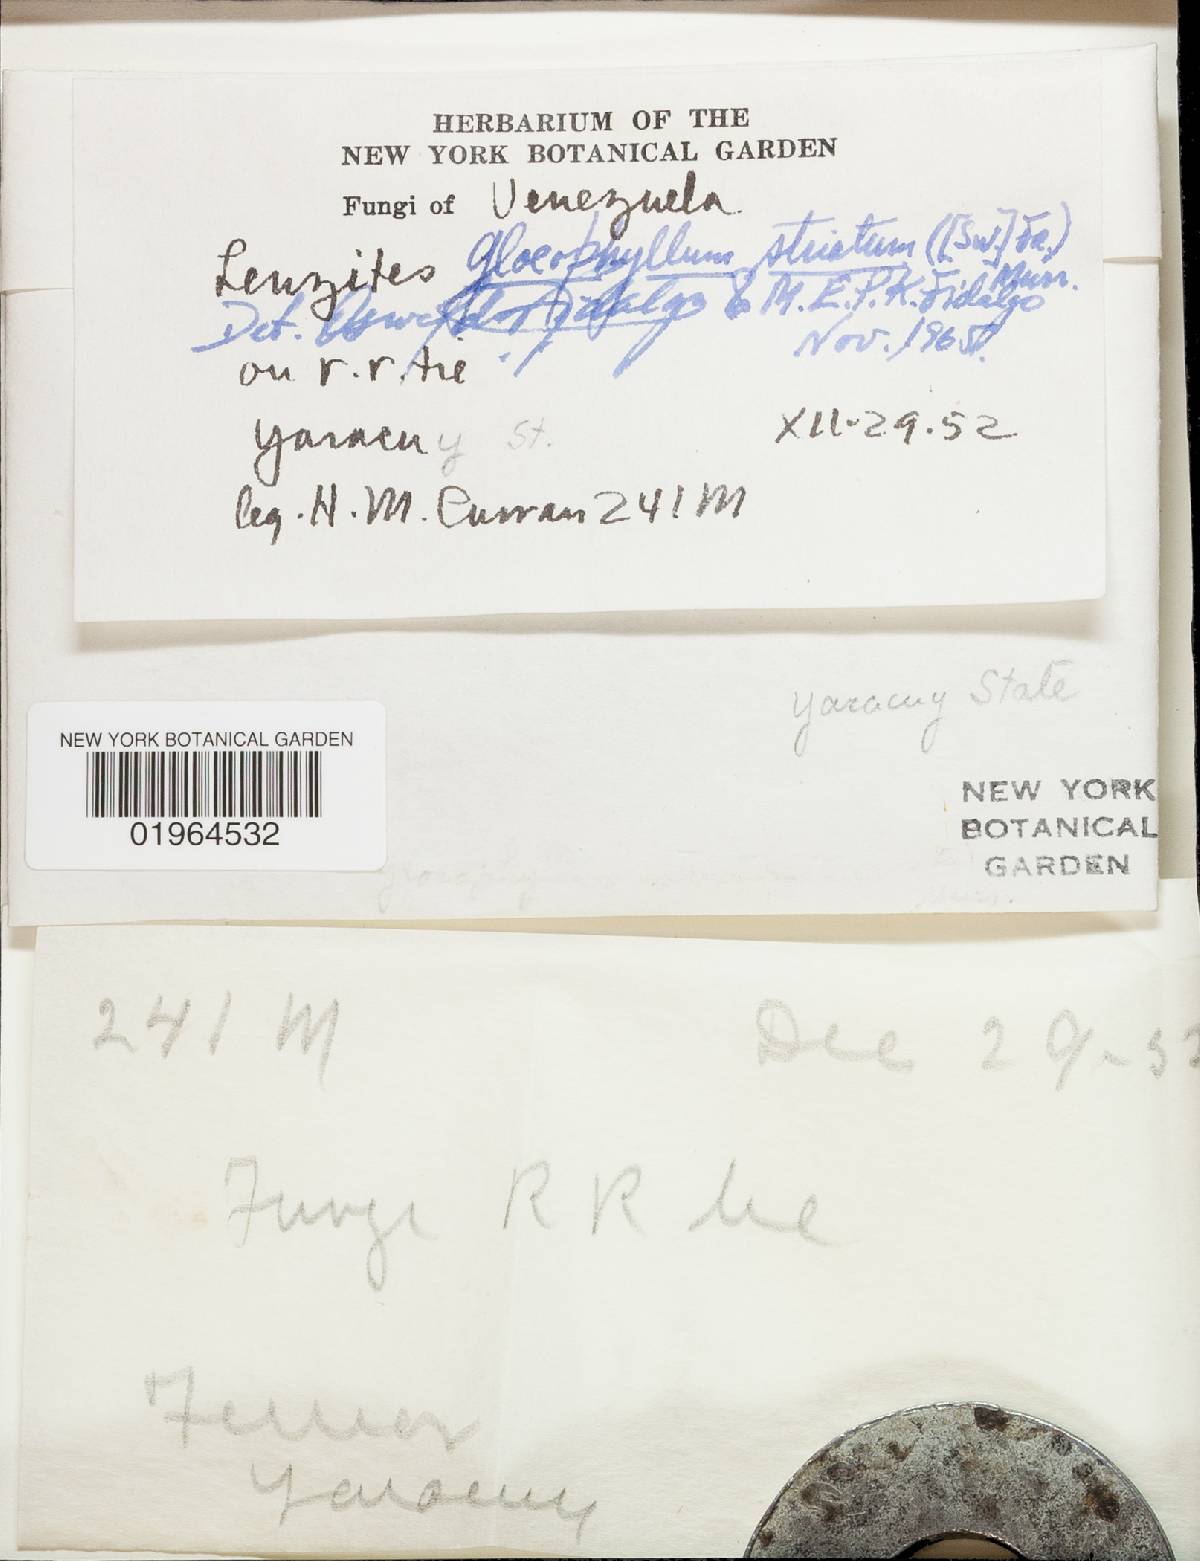 HERBARIUM OF THE
NEW YORK BOTANICAL GARDEN
Fungi of Venezuela
Lenzites Gloeophyllum striatum ([Sw.] Fr.) Murr.
Det. Oswaldo Fidalgo & M. E. P. K. Fidalgo
Nov. 1965
on r.r. tie
Yaracuy St. XII-29-52
leg. H. M. Curran 241 M
Yaracuy State
NEW YORK BOTANICAL GARDEN
01964532
NEW YORK
BOTANICAL
GARDEN
241 M Dec 29-52
Fungi R R tie
Yaracuy